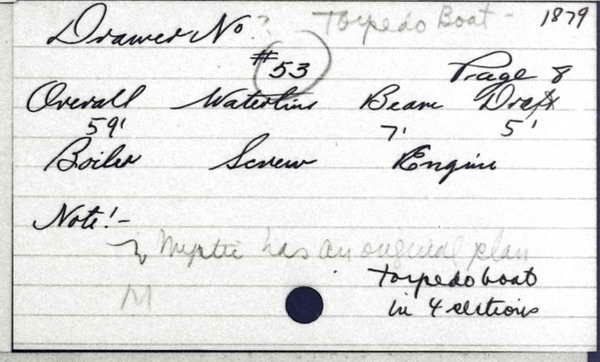 Drawer No ? Torpedo Boat - 1879
#53
Page 8
Overall Waterline Beam Draft
59' 7' 5'
Boiler Screw Engine
Note! -
Mystic has an original plan
M
torpedo boat
in 4 sections